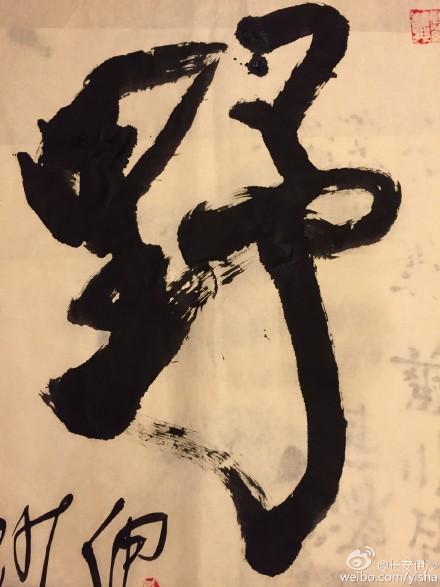 野
伊沙
@长安伊沙
weibo.com/yisha